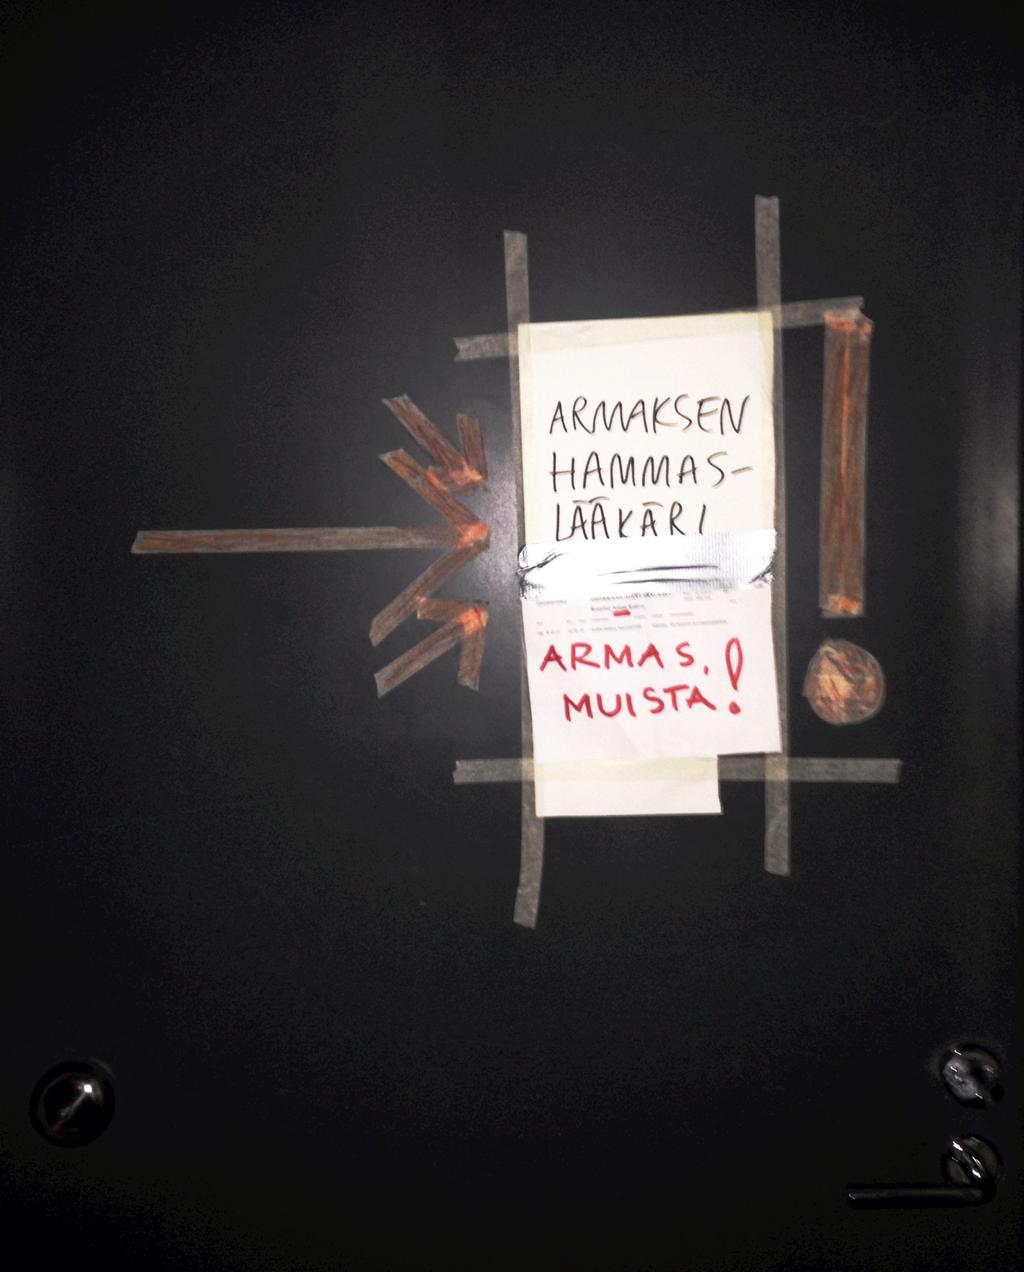 ARMAKSEN
HAMMAS-
LÄÄKÄRI
ARMAS,
MUISTA!